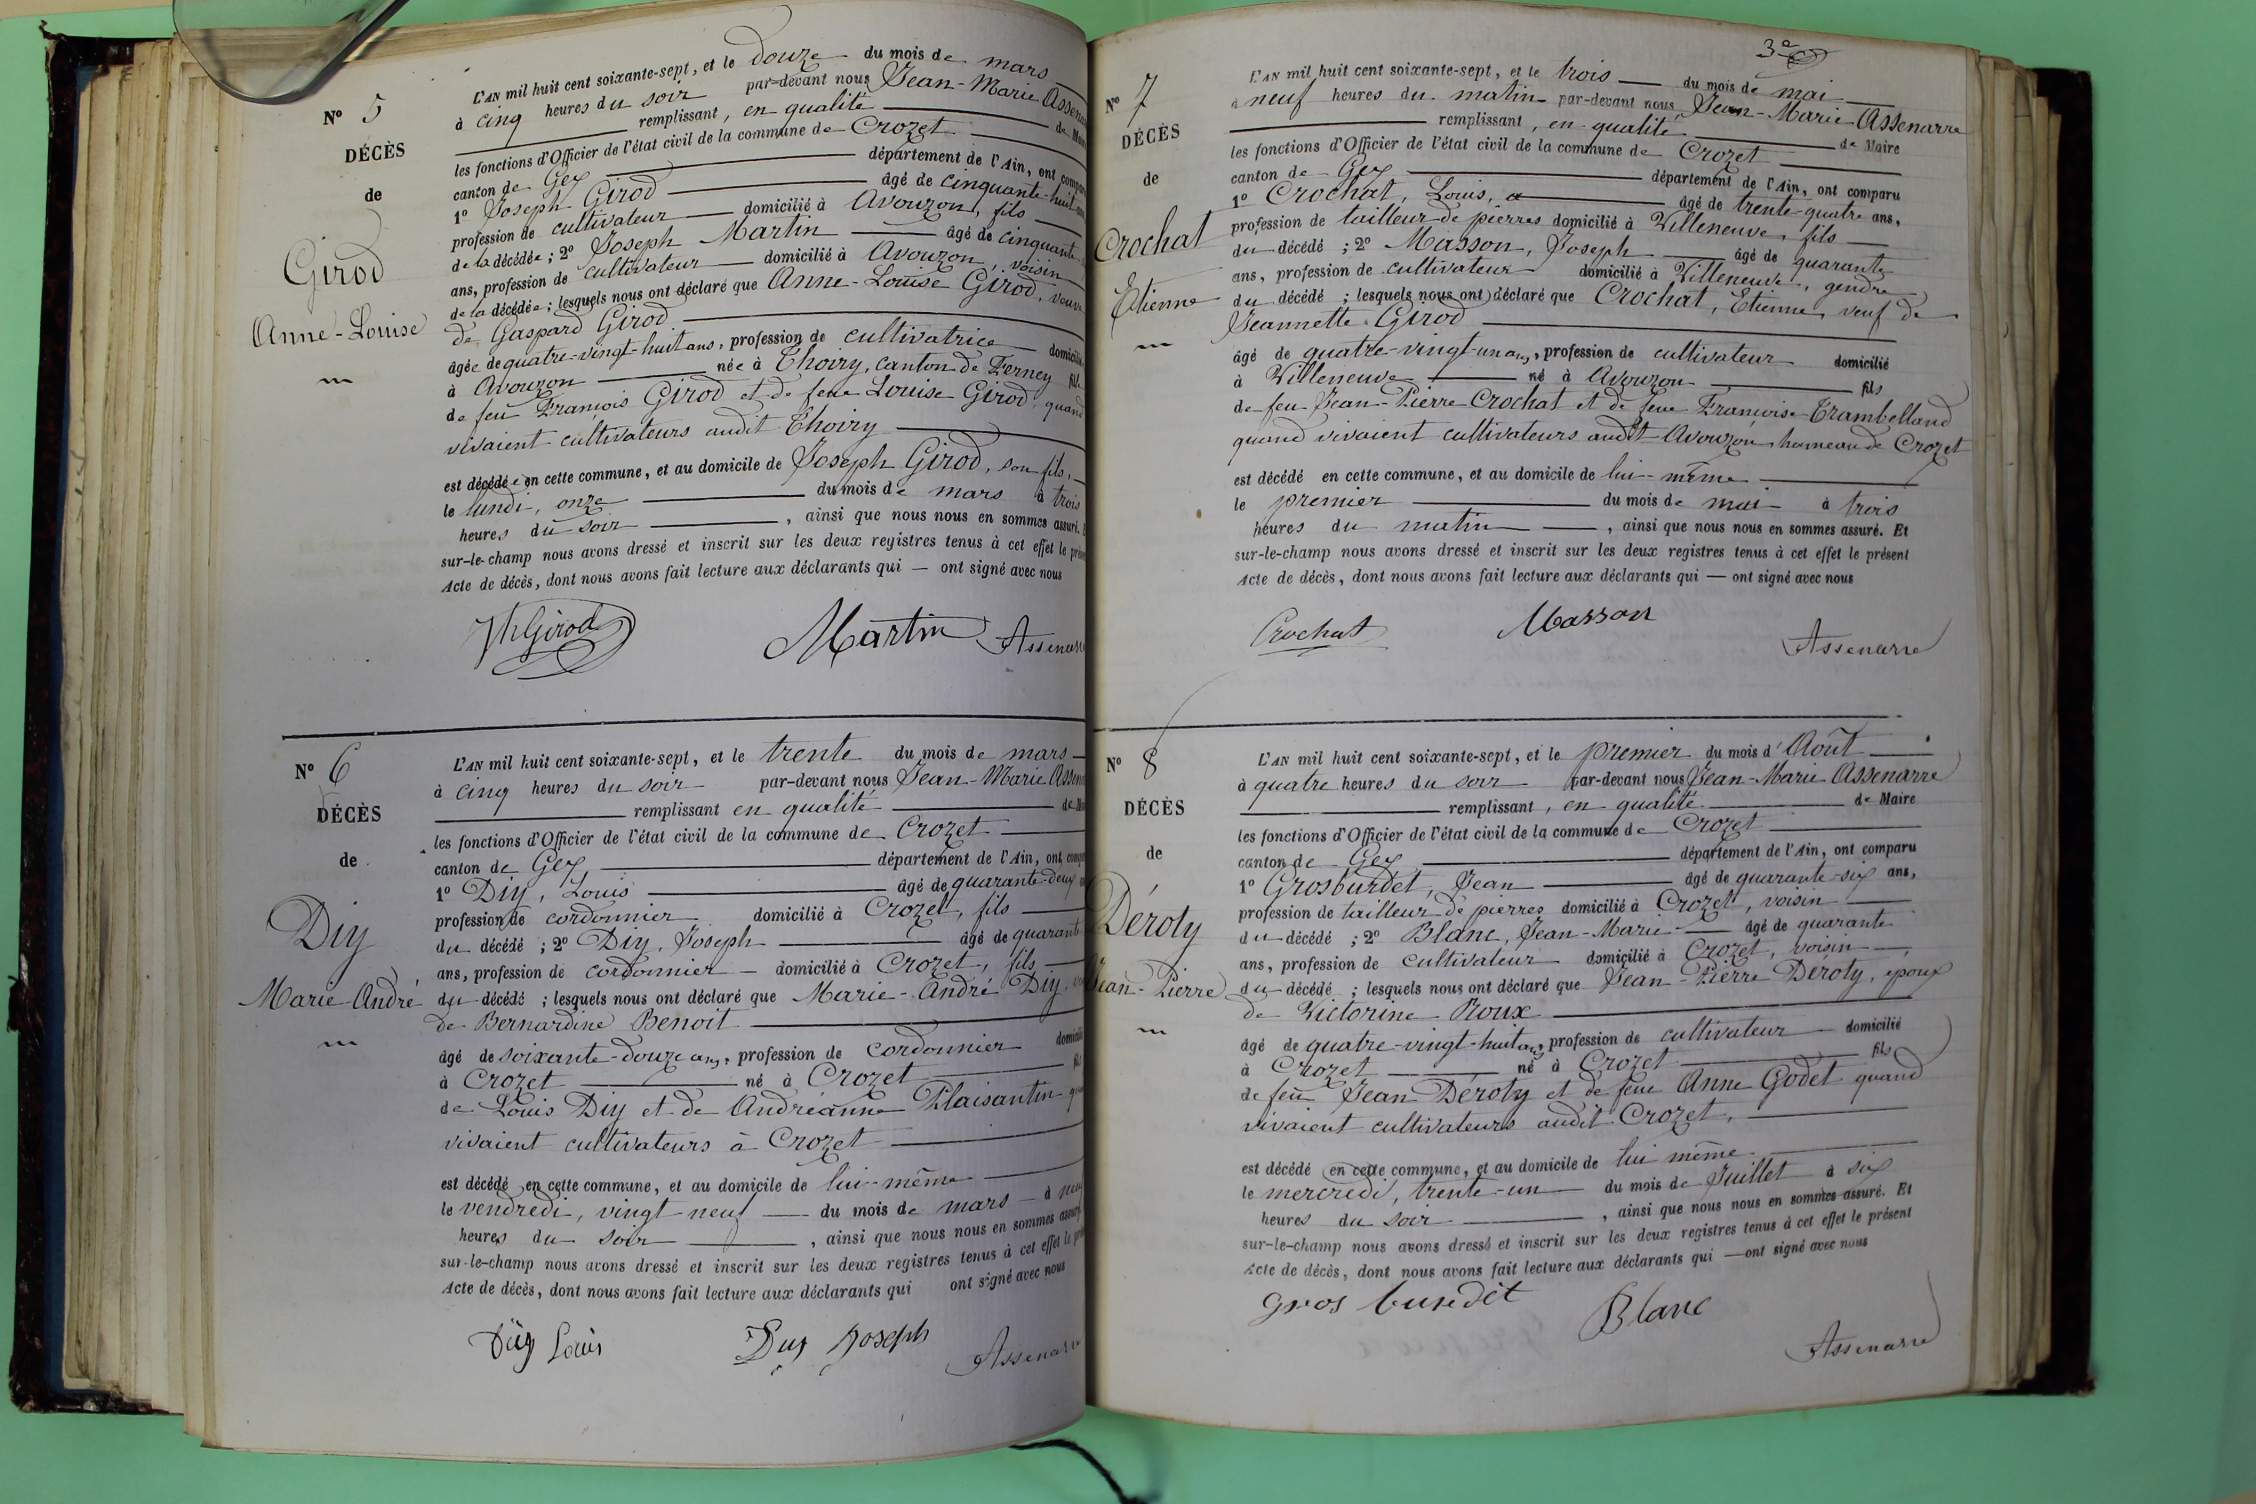 N° 5
DÉCÈS
de
Girod
Anne-Louise
L'AN mil huit cent soixante-sept, et le douze du mois de mars
à cinq heures du soir par-devant nous Jean-Marie Assenarre
remplissant, en qualité de Maire
les fonctions d'Officier de l'état civil de la commune de Crozet
canton de Gex département de l'Ain, ont comparu
1° Joseph Girod âgé de cinquante-huit ans
profession de cultivateur domicilié à Avouzon, fils
de la décédée ; 2° Joseph Martin âgé de cinquante
ans, profession de cultivateur domicilié à Avouzon, voisin
de la décédée ; lesquels nous ont déclaré que Anne-Louise Girod, veuve
de Gaspard Girod
âgée de quatre-vingt-huit ans, profession de cultivatrice domiciliée
à Avouzon née à Thoiry, canton de Ferney fille
de feu François Girod et de feue Louise Girod, quand
vivaient cultivateurs audit Thoiry
est décédée en cette commune, et au domicile de Joseph Girod, son fils,
le lundi, onze du mois de mars à trois
heures du soir, ainsi que nous nous en sommes assuré. Et
sur-le-champ nous avons dressé et inscrit sur les deux registres tenus à cet effet le présent
Acte de décès, dont nous avons fait lecture aux déclarants qui — ont signé avec nous
Jh Girod Martin Assenarre
N° 6
DÉCÈS
de
Diy
Marie-André
L'AN mil huit cent soixante-sept, et le trente du mois de mars
à cinq heures du soir par-devant nous Jean-Marie Assenarre
remplissant en qualité de Maire
les fonctions d'Officier de l'état civil de la commune de Crozet
canton de Gex département de l'Ain, ont comparu
1° Diy, Louis âgé de quarante-deux ans
profession de cordonnier domicilié à Crozet, fils
du décédé ; 2° Diy, Joseph âgé de quarante
ans, profession de cordonnier domicilié à Crozet, fils
du décédé ; lesquels nous ont déclaré que Marie-André Diy,
de Bernardine Benoit
âgé de soixante-douze ans, profession de cordonnier domicilié
à Crozet né à Crozet fils
de Louis Diy et de Andréanne Plaisantin quand
vivaient cultivateurs à Crozet
est décédé en cette commune, et au domicile de lui-même
le vendredi, vingt-neuf du mois de mars à neuf
heures du soir, ainsi que nous nous en sommes assuré.
sur-le-champ nous avons dressé et inscrit sur les deux registres tenus à cet effet le présent
Acte de décès, dont nous avons fait lecture aux déclarants qui ont signé avec nous
Diy Louis Diy Joseph Assenarre
3e
N° 7
DÉCÈS
de
Crochat
Etienne
L'AN mil huit cent soixante-sept, et le trois du mois de mai
à neuf heures du matin par-devant nous Jean-Marie Assenarre
remplissant, en qualité de Maire
les fonctions d'Officier de l'état civil de la commune de Crozet
canton de Gex département de l'Ain, ont comparu
1° Crochat, Louis, âgé de trente-quatre ans,
profession de tailleur de pierres domicilié à Villeneuve, fils
du décédé ; 2° Masson, Joseph âgé de quarante
ans, profession de cultivateur domicilié à Villeneuve, gendre
du décédé ; lesquels nous ont déclaré que Crochat, Etienne, veuf de
Jeannette Girod
âgé de quatre-vingt-un ans, profession de cultivateur domicilié
à Villeneuve né à Avouzon fils
de feu Jean-Pierre Crochat et de feue Françoise Trambelland
quand vivaient cultivateurs audit Avouzon hameau de Crozet
est décédé en cette commune, et au domicile de lui-même
le premier du mois de mai à trois
heures du matin, ainsi que nous nous en sommes assuré. Et
sur-le-champ nous avons dressé et inscrit sur les deux registres tenus à cet effet le présent
Acte de décès, dont nous avons fait lecture aux déclarants qui — ont signé avec nous
Crochat Masson Assenarre
N° 8
DÉCÈS
de
Déroty
Jean-Pierre
L'AN mil huit cent soixante-sept, et le premier du mois d'Août
à quatre heures du soir par-devant nous Jean-Marie Assenarre
remplissant, en qualité de Maire
les fonctions d'Officier de l'état civil de la commune de Crozet
canton de Gex département de l'Ain, ont comparu
1° Grosburdet, Jean âgé de quarante-six ans,
profession de tailleur de pierres domicilié à Crozet, voisin
du décédé ; 2° Blanc, Jean-Marie âgé de quarante
ans, profession de cultivateur domicilié à Crozet, voisin
du décédé ; lesquels nous ont déclaré que Jean-Pierre Déroty, époux
de Victorine Roux
âgé de quatre-vingt-huit ans, profession de cultivateur domicilié
à Crozet né à Crozet fils
de feu Jean Déroty et de feue Anne Godet quand
vivaient cultivateurs audit Crozet,
est décédé en cette commune, et au domicile de lui même
le mercredi, trente-un du mois de Juillet à six
heures du soir, ainsi que nous nous en sommes assuré. Et
sur-le-champ nous avons dressé et inscrit sur les deux registres tenus à cet effet le présent
Acte de décès, dont nous avons fait lecture aux déclarants qui — ont signé avec nous
Gros burdet Blanc Assenarre